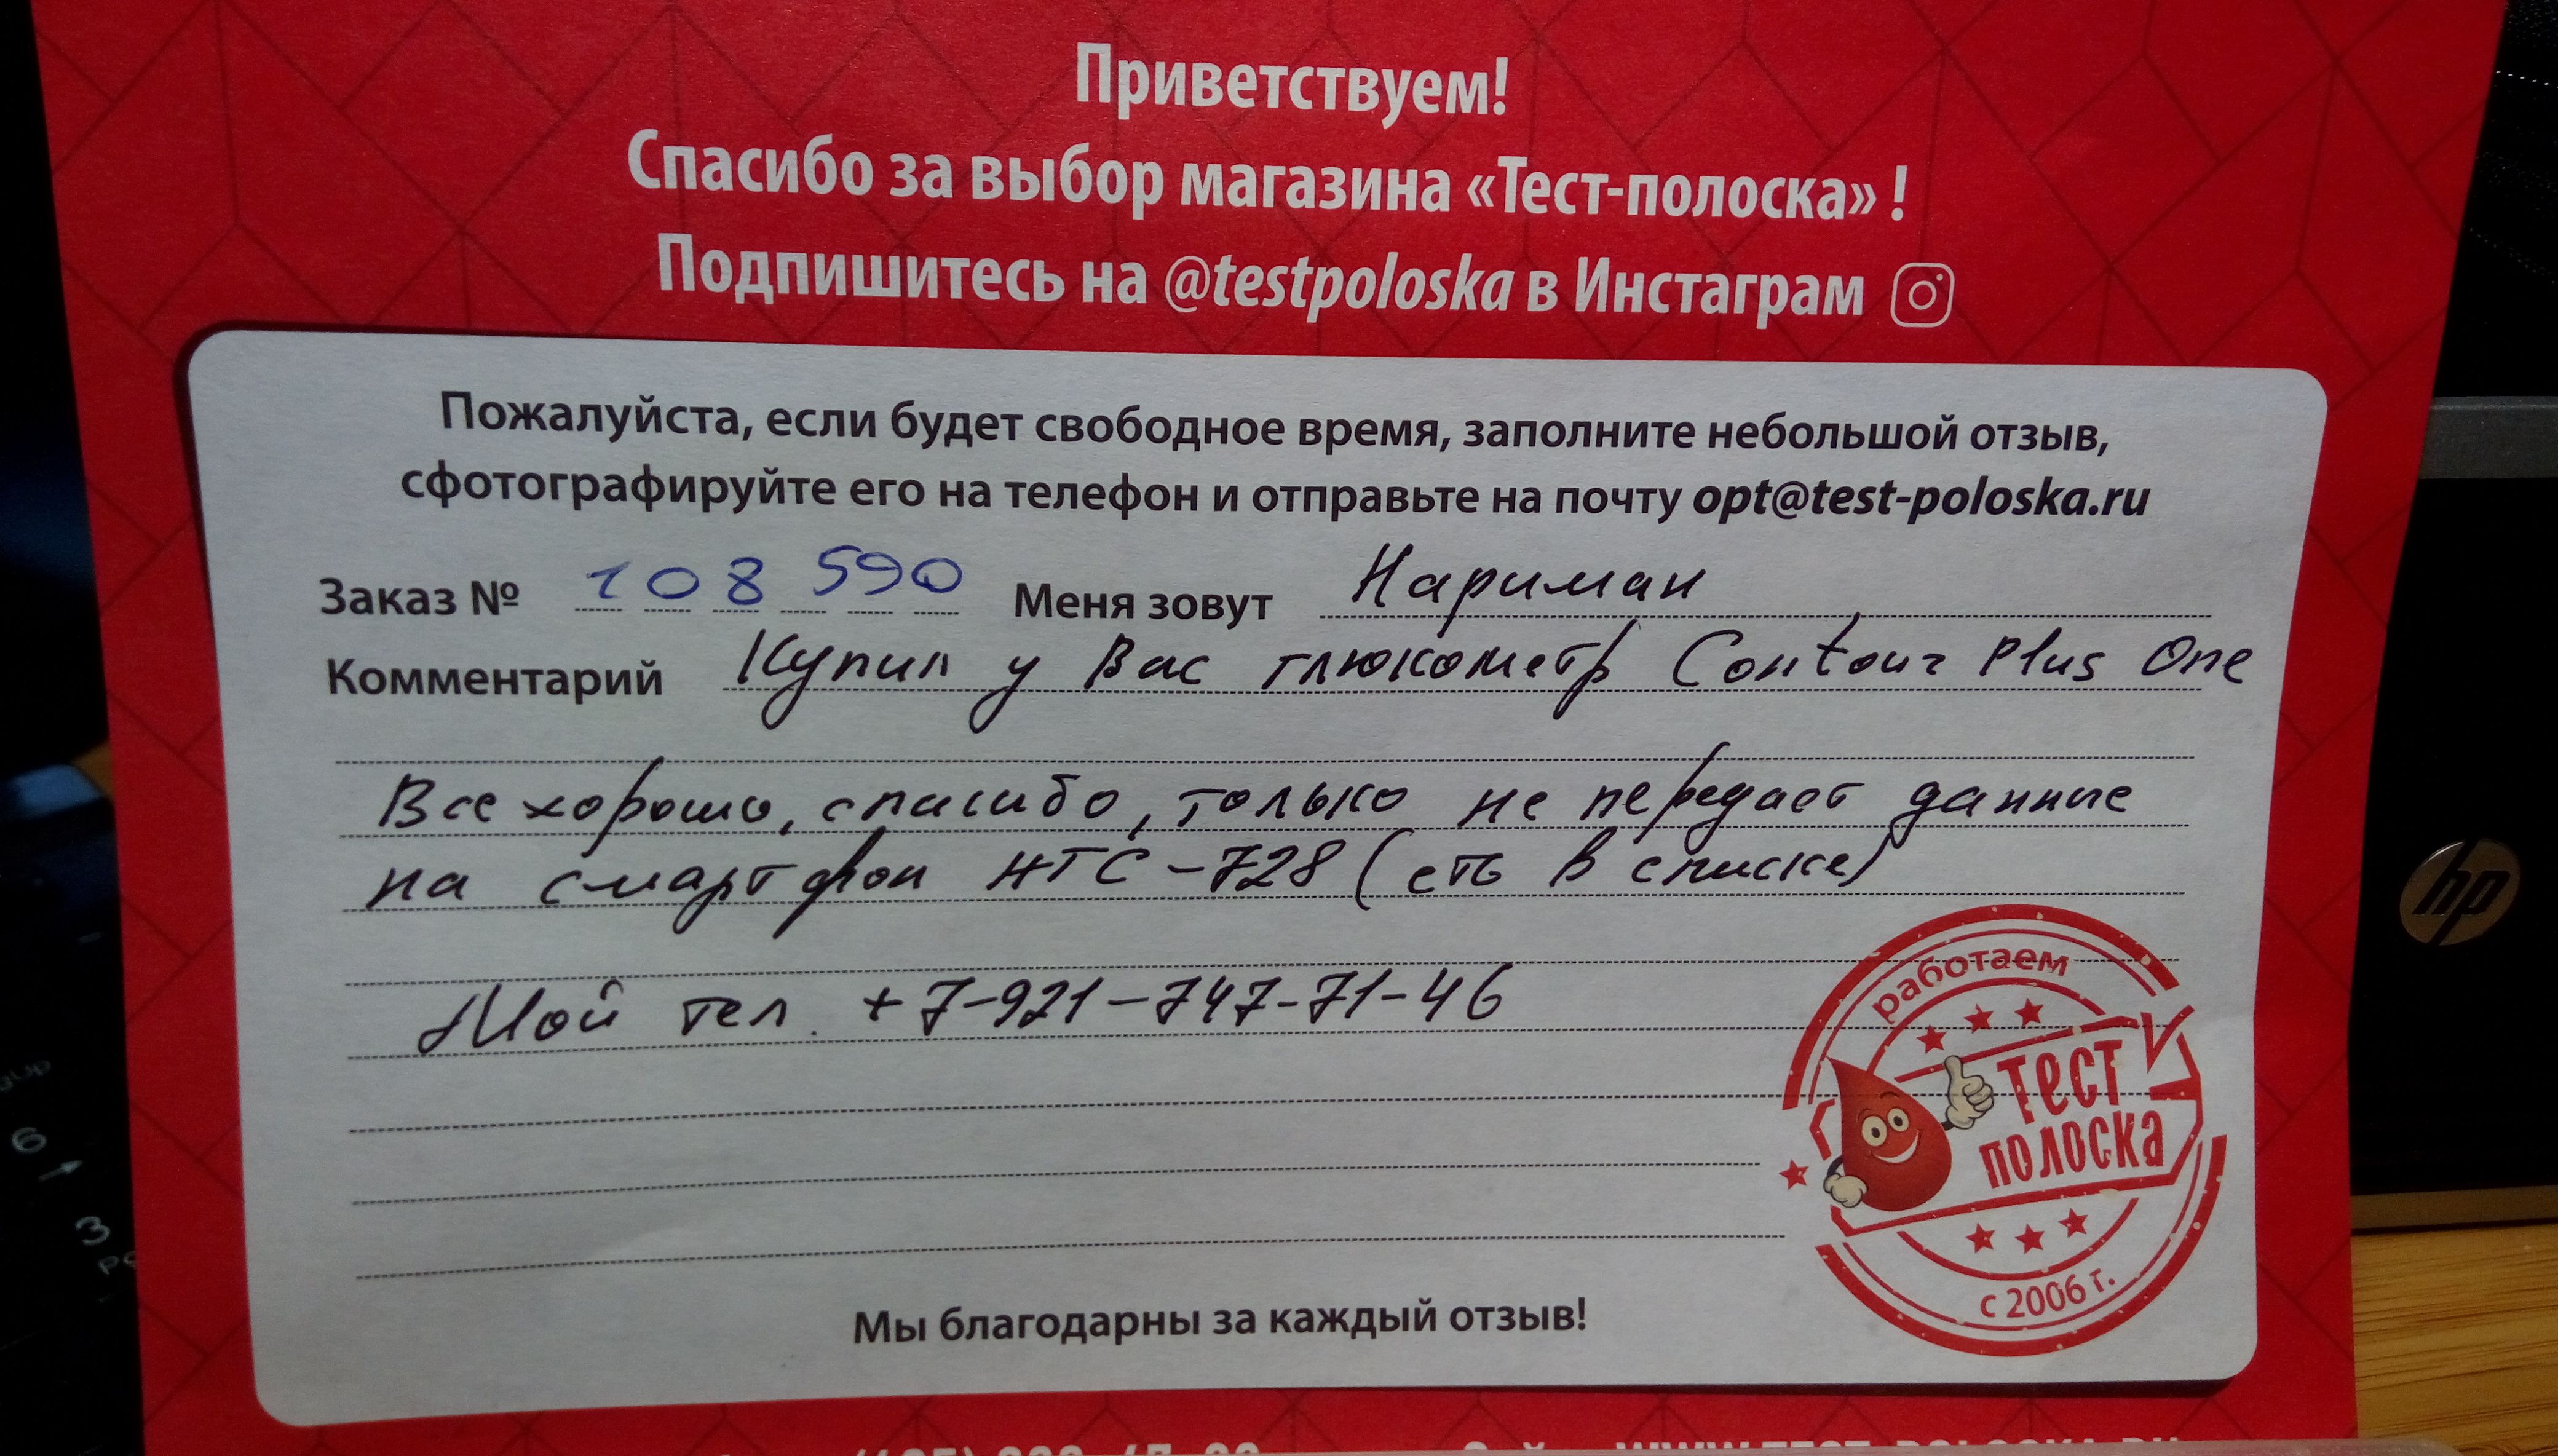 Приветствуем!
Спасибо за выбор магазина «Тест-полоска» !
Подпишитесь на @testpoloska в Инстаграм
Пожалуйста, если будет свободное время, заполните небольшой отзыв,
сфотографируйте его на телефон и отправьте на почту opt@test-poloska.ru
Заказ № 108 590 Меня зовут Нариман
Комментарий Купил у Вас глюкометр Contour Plus One
Все хорошо, спасибо, только не передает данные
на смартфон HTC-728 (есть в списке)
Мой тел. +7-921-747-71-46
работаем
ТЕСТ
ПОЛОСКА
с 2006 г.
Мы благодарны за каждый отзыв!
hp
6
3